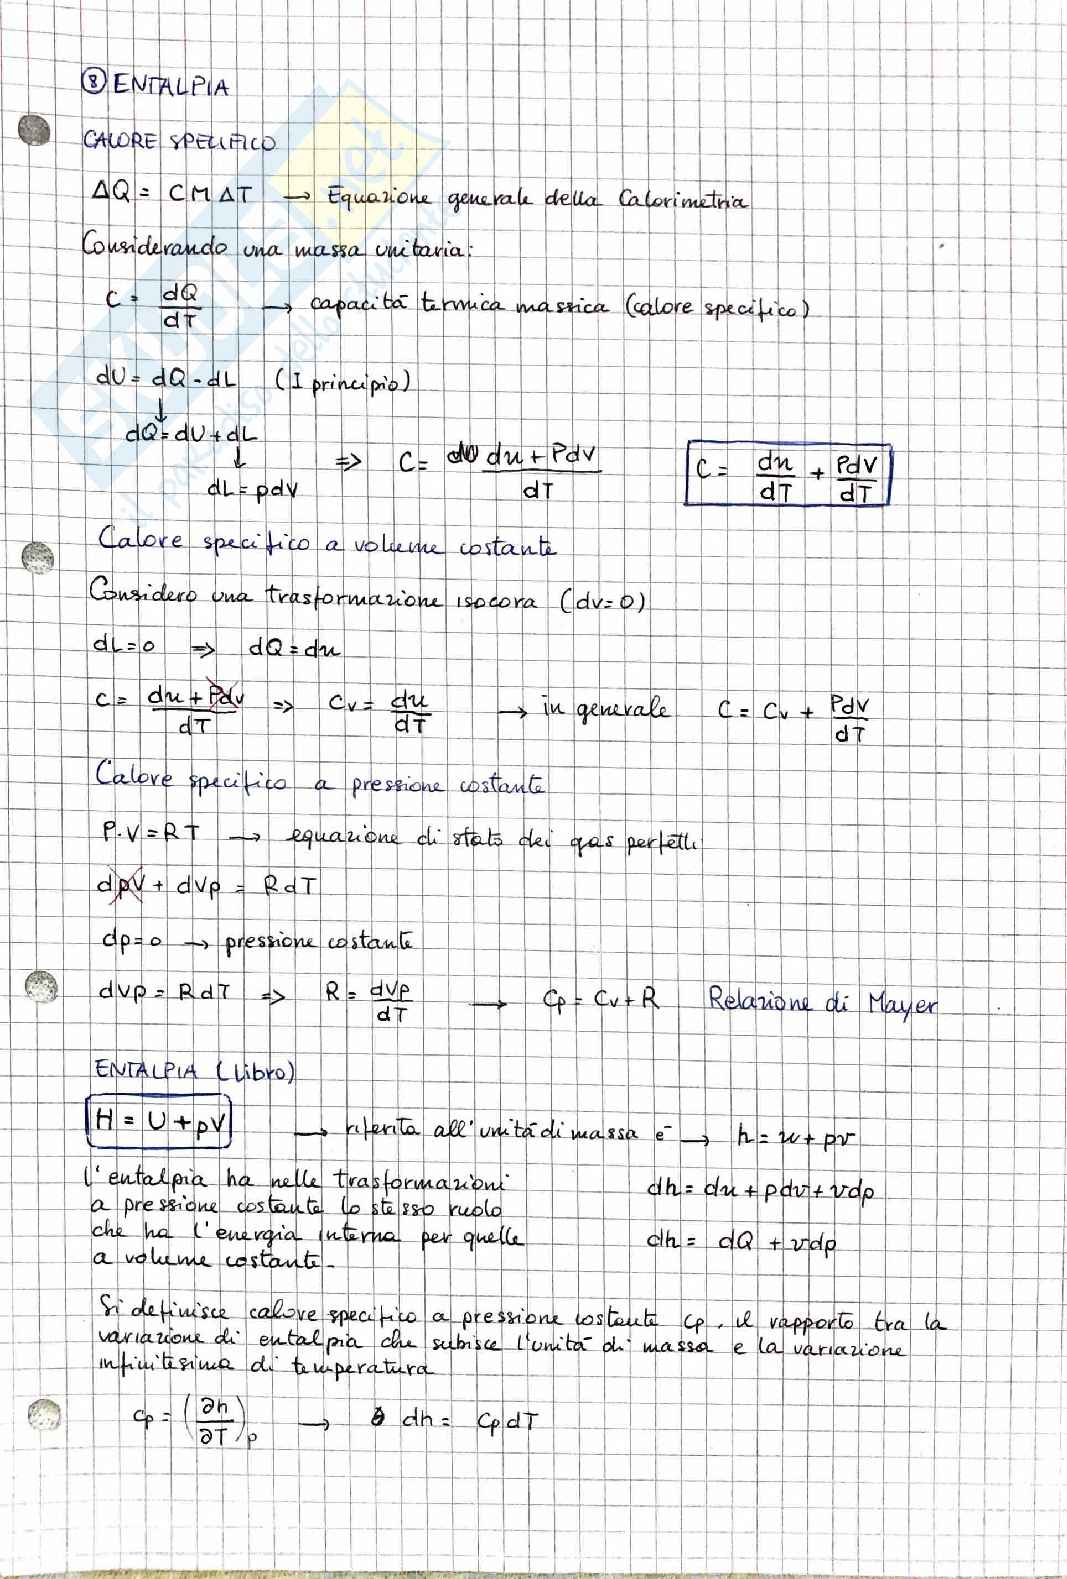 ⑧ ENTALPIA
CALORE SPECIFICO
ΔQ = CMΔT → Equazione generale della Calorimetria
Considerando una massa unitaria:
C = dQ/dT → capacità termica massica (calore specifico)
dU = dQ - dL (I principio)
↓
dQ = dU + dL
↓
dL = pdV
⇒ C = du + Pdv/dT
C = du/dT + Pdv/dT
Calore specifico a volume costante
Considero una trasformazione isocora (dv=0)
dL=0 ⇒ dQ = du
C = du + Pdv/dT ⇒ Cv = du/dT → in generale C = Cv + Pdv/dT
Calore specifico a pressione costante
P·V = RT → equazione di stato dei gas perfetti
dpv + dvp = RdT
dp=0 → pressione costante
dvp = RdT ⇒ R = dvp/dT → Cp = Cv + R Relazione di Mayer
ENTALPIA (Libro)
H = U + pV → riferita all'unità di massa è → h = u + pv
L'entalpia ha nelle trasformazioni
a pressione costante lo stesso ruolo
che ha l'energia interna per quelle
a volume costante.
dh = du + pdv + vdp
dh = dQ + vdp
Si definisce calore specifico a pressione costante cp, il rapporto tra la
variazione di entalpia che subisce l'unità di massa e la variazione
infinitesima di temperatura
cp = (∂h/∂T)p → dh = CpdT